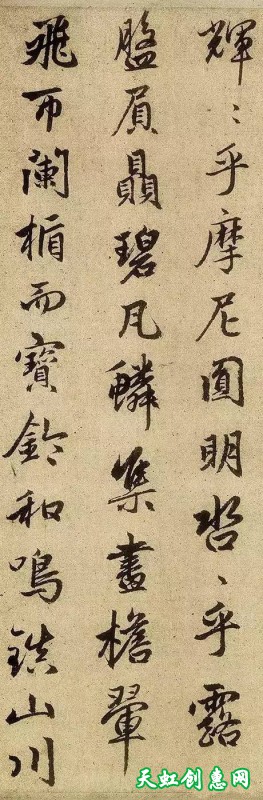 輝〻乎摩尼圓明沓〻乎露
盤屓贔碧瓦鱗集畫檐翬
飛帀闌楯而寶鈴和鳴鎮山川
天虹创惠网